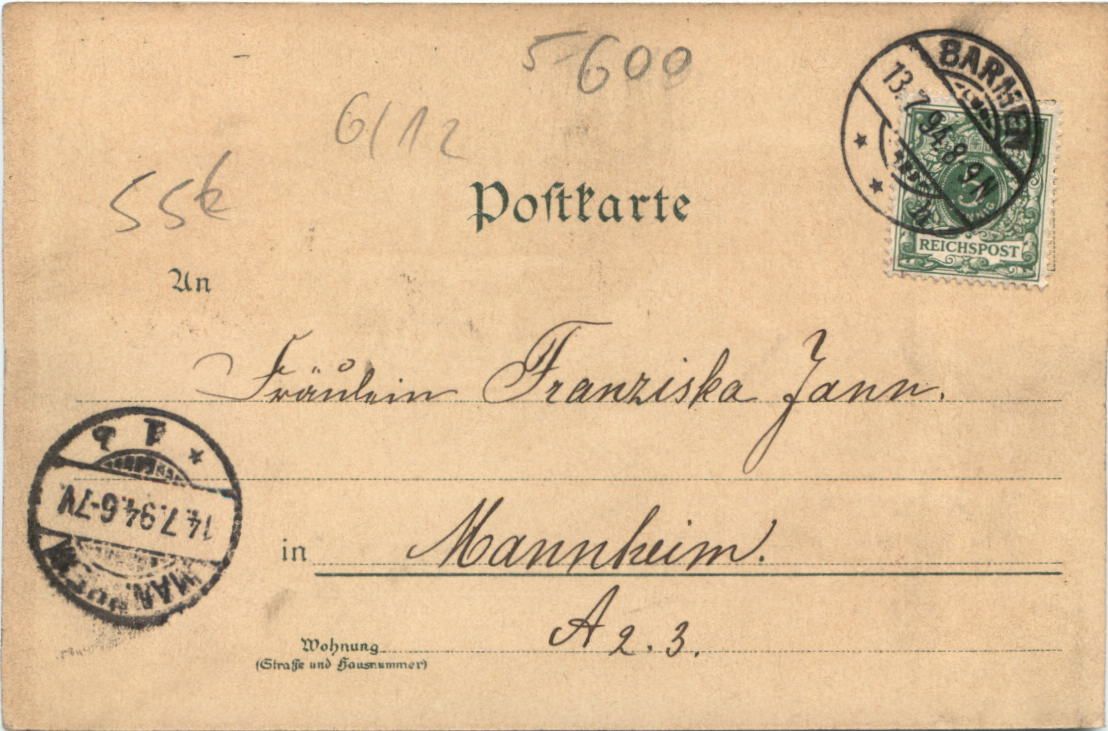 5-600
6/12
55k
BARMEN
13.7.94.8-9N
REICHSPOST
Postkarte
An
Fräulein Franziska Jann.
MANNHEIM
14.7.94.6-7V.
in Mannheim.
A 2. 3.
Wohnung
(Straße und Hausnummer)